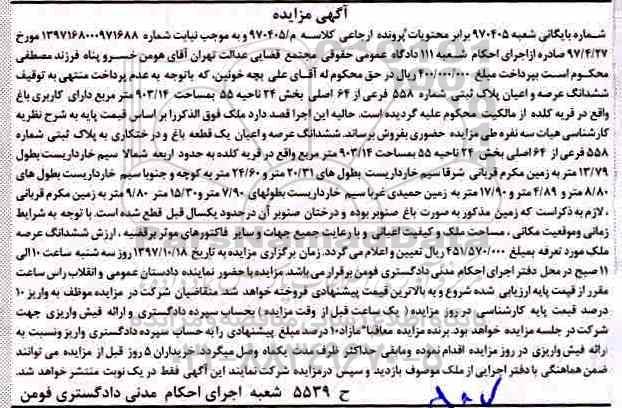 آگهی مزایده
شماره بایگانی شعبه ۹۷۰۴۰۵ برابر محتویات پرونده ارجاعی کلاسه م/۹۷۰۴۰۵ و به موجب نیابت شماره ۱۳۹۷۱۶۸۰۰۰۹۷۱۶۸۸ مورخ
۹۷/۴/۲۷ صادره از اجرای احکام شعبه ۱۱۱ دادگاه عمومی حقوقی مجتمع قضایی عدالت تهران آقای هومن خسرو پناه فرزند مصطفی
محکوم است بپرداخت مبلغ ۴۰۰/۰۰۰/۰۰۰ ریال در حق محکوم له آقای علی بچه خونین، که باتوجه به عدم پرداخت منتهی به توقیف
ششدانگ عرصه و اعیان پلاک ثبتی شماره ۵۵۸ فرعی از ۶۴ اصلی بخش ۲۴ ناحیه ۵۵ بمساحت ۹۰۳/۱۴ متر مربع دارای کاربری باغ
واقع در قریه کلده از مالکیت محکوم علیه گردیده است. حالیه این اجرا قصد دارد ملک فوق الذکر را بر اساس قیمت پایه به شرح نظریه
کارشناسی هیات سه نفره طی مزایده حضوری بفروش برساند. ششدانگ عرصه و اعیان یک قطعه باغ و درختکاری به پلاک ثبتی شماره
۵۵۸ فرعی از ۶۴ اصلی بخش ۲۴ ناحیه ۵۵ بمساحت ۹۰۳/۱۴ متر مربع واقع در قریه کلده به حدود اربعه شمالا سیم خارداریست بطول
۱۳/۷۹ متر به زمین مکرم قربانی شرقا سیم خارداریست بطول های ۲۰/۳۱ متر و ۲۴/۶۰ متر به کوچه و جنوبا سیم خارداریست بطول های
۸/۸۰ متر و ۴/۸۹ متر و ۱۷/۹۰ متر به زمین حمیدی غربا سیم خارداریست بطولهای ۷/۹۰ متر و ۱۵/۳۰ متر ۹/۸۰ متر به زمین مکرم قربانی
، لازم به ذکر است که زمین مذکور به صورت باغ صنوبر بوده و درختان صنوبر آن درحدود یکسال قبل قطع شده است. با توجه به شرایط
زمانی وموقعیت مکانی ، مساحت ملک و کیفیت اعیانی و با رعایت جمیع جهات و سایر فاکتورهای موثر برقضیه ، ارزش ششدانگ عرصه
ملک مورد تعرفه بمبلغ ۴۵۱/۵۷۰/۰۰۰ ریال تعیین و اعلام می گردد. زمان برگزاری مزایده به تاریخ ۱۳۹۷/۱۰/۱۸ روز سه شنبه ساعت ۱۰ الی
۱۱ صبح در محل دفتر اجرای احکام مدنی دادگستری فومن برقرار می باشد. مزایده با حضور نماینده دادستان عمومی و انقلاب راس ساعت
مقرر از قیمت پایه ارزیابی شده شروع و به بالاترین قیمت پیشنهادی فروخته خواهد شد. متقاضیان شرکت در مزایده موظف به واریز ۱۰
درصد قیمت پایه کارشناسی در روز مزایده ( یک ساعت قبل از وقت مزایده) بحساب سپرده دادگستری و ارائه فیش واریزی جهت
شرکت در جلسه مزایده خواهد بود. برنده مزایده معاقبا" مازاد ۱۰ درصد مبلغ پیشنهادی را به حساب سپرده دادگستری واریز ونسبت به
ارائه فیش واریزی در روز مزایده اقدام نموده ومابقی حداکثر ظرف مدت یکماه وصل میگردد. خریداران ۵ روز قبل از مزایده می توانند
ضمن هماهنگی با دفتر اجرایی از ملک موصوف بازدید و سپس درمزایده شرکت نمایند این آگهی فقط در یک نوبت منتشر خواهد شد.
ح ۵۵۳۹ شعبه اجرای احکام مدنی دادگستری فومن